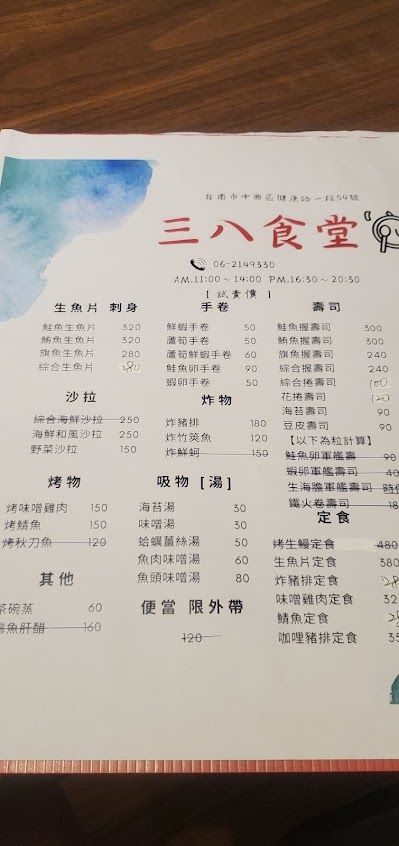 台南市中西區健康路一段54號
三八食堂
06-2149330
AM.11:00~14:00 PM.16:30~20:30
【試賣價】
生魚片 刺身
鮭魚生魚片 320
鮪魚生魚片 320
旗魚生魚片 280
綜合生魚片 280
沙拉
綜合海鮮沙拉 250
海鮮和風沙拉 250
野菜沙拉 150
烤物
烤味噌雞肉 150
烤鯖魚 150
烤秋刀魚 120
其他
茶碗蒸 60
魚肝醋 160
手卷
鮮蝦手卷 50
蘆筍手卷 50
蘆筍鮮蝦手卷 60
鮭魚卵手卷 90
蝦卵手卷 50
炸物
炸豬排 180
炸竹筴魚 120
炸鮮蚵 150
吸物 [湯]
海苔湯 30
味噌湯 30
蛤蠣薑絲湯 50
魚肉味噌湯 60
魚頭味噌湯 80
便當 限外帶
120
壽司
鮭魚握壽司 300
鮪魚握壽司 300
旗魚握壽司 240
綜合握壽司 240
綜合捲壽司 100
花捲壽司 120
海苔壽司 90
豆皮壽司 90
【以下為粒計算】
鮭魚卵軍艦壽 90
蝦卵軍艦壽司 40
生海膽軍艦壽司 時
鐵火卷壽司
定食
烤生鰻定食 480
生魚片定食 380
炸豬排定食
味噌雞肉定食
鯖魚定食
咖哩豬排定食